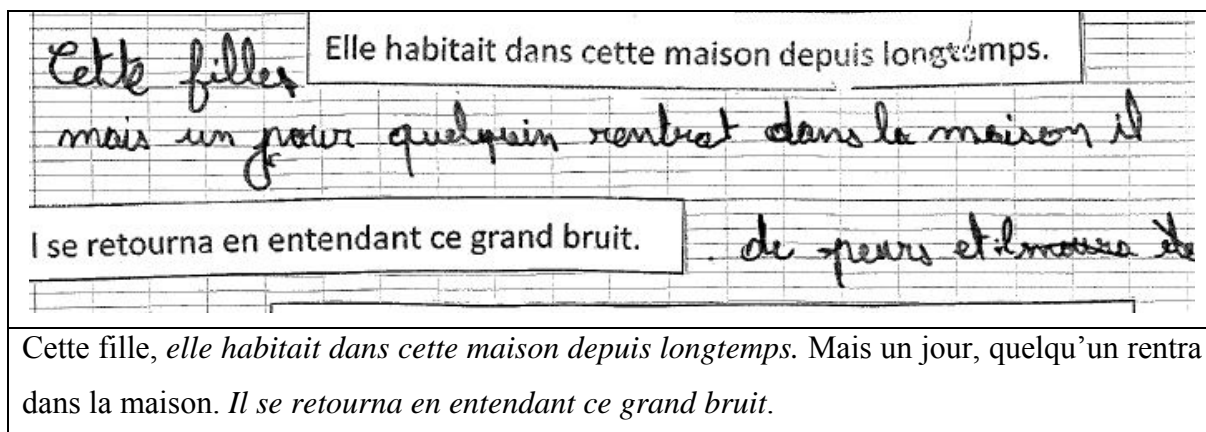 Cette filles Elle habitait dans cette maison depuis longtemps.
mais un jour quelquin rentrat dans la maison il
l se retourna en entendant ce grand bruit. de peurs et il
Cette fille, elle habitait dans cette maison depuis longtemps. Mais un jour, quelqu’un rentra
dans la maison. Il se retourna en entendant ce grand bruit.